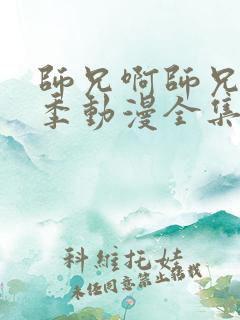 師兄啊師兄
季動漫全集
科維托娃
未经同意禁止转载